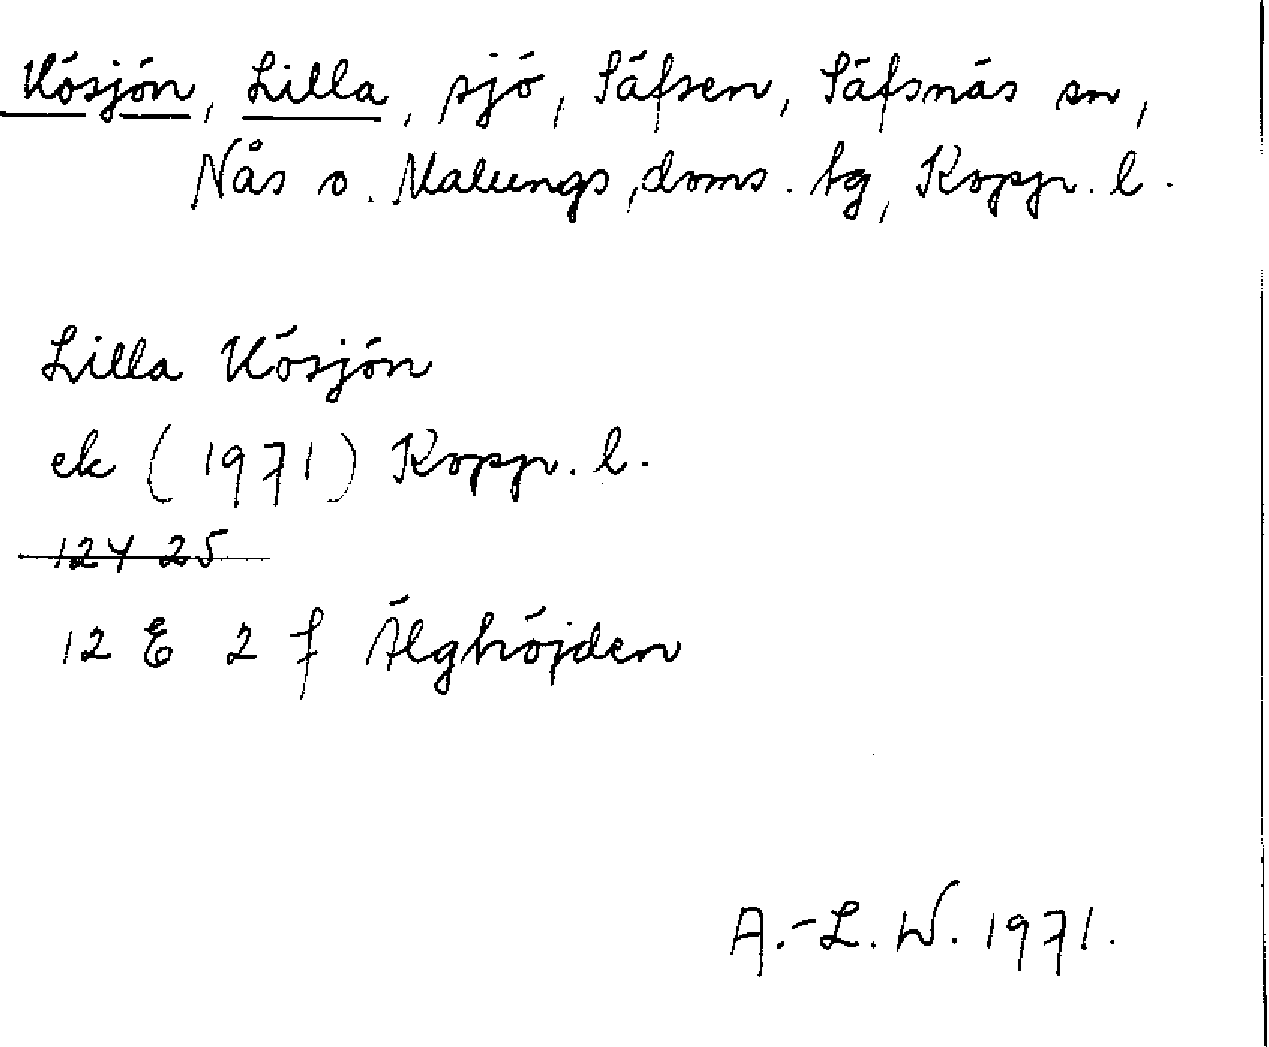 Kösjön, Lilla, sjö, Säfsen, Säfsnäs sn,
Nås o. Malungs doms. tg, Koppr. l.
Lilla Kösjön
ek (1971) Koppr. l.
12Y 25
12 E 2 f Älghöjden
A.-L. W. 1971.